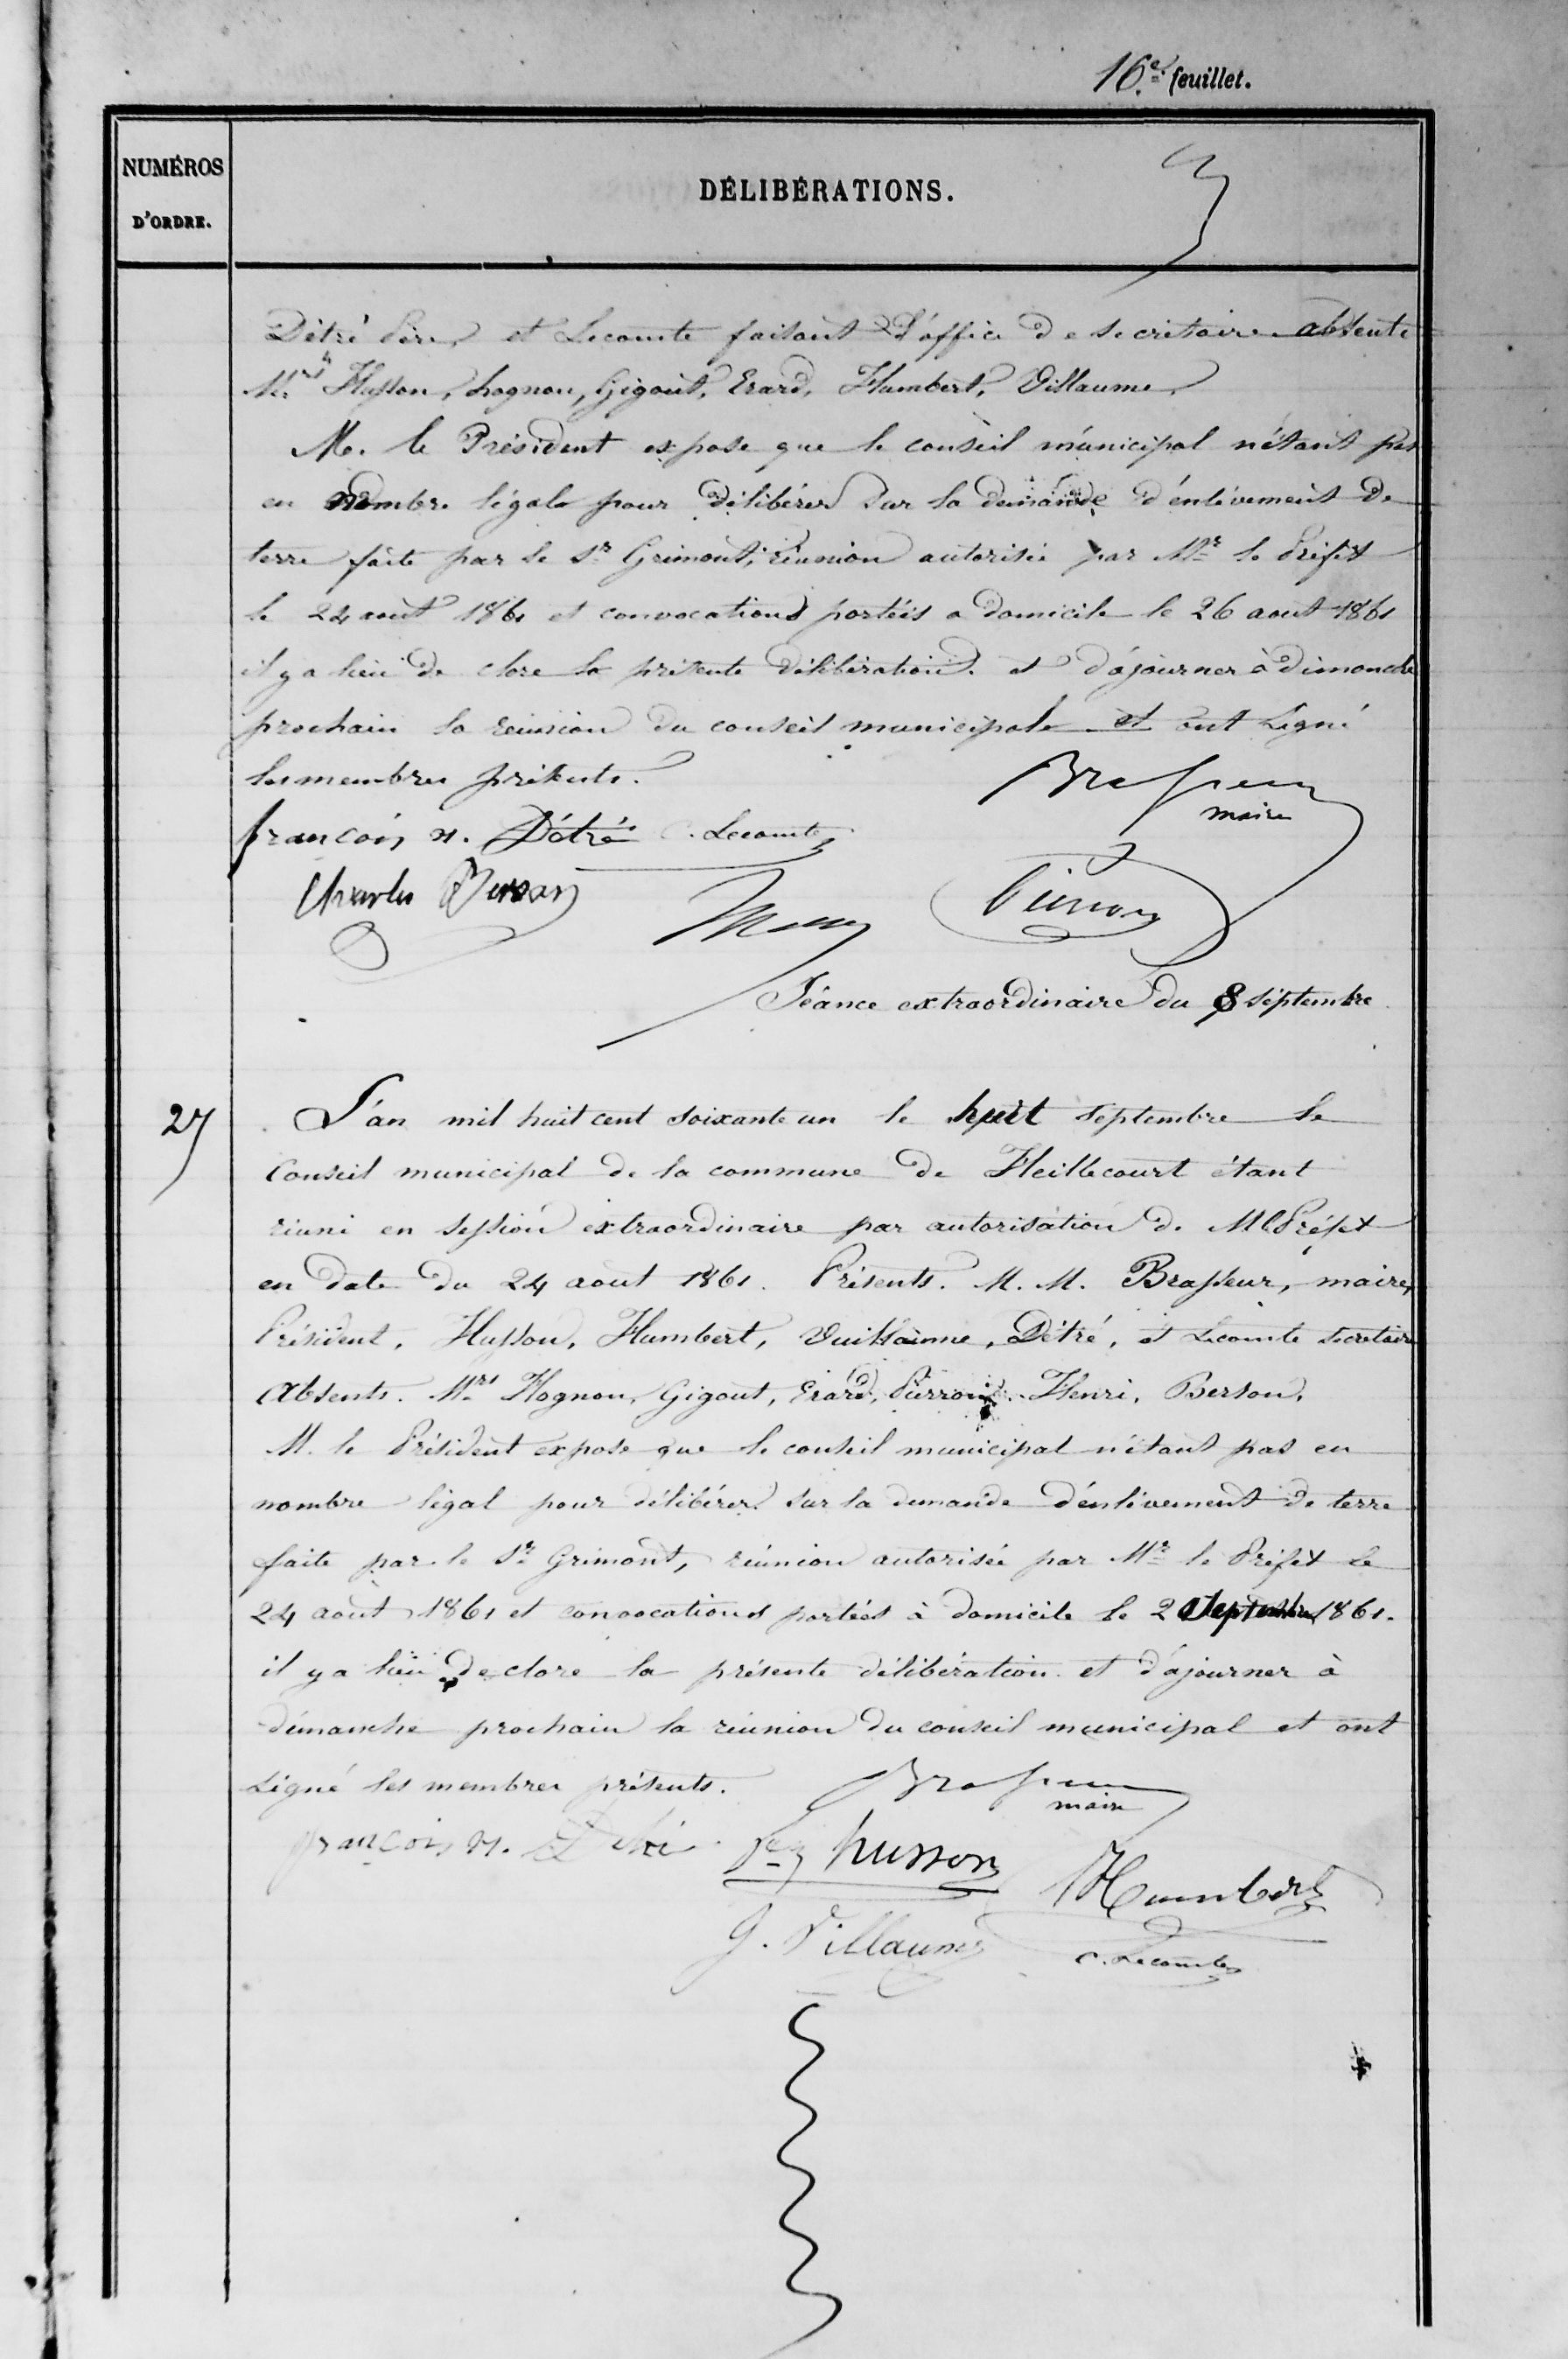 16e. feuillet.
NUMÉROS
D'ORDRE.
DÉLIBÉRATIONS.
Détré Père, et Lecomte faisant d'office de secrétaire absents
Mrs Husson, hognon, Gigout, Erard, Humbert, Villaume
M. le Président expose que le conseil municipal n'étant pas
en nombre légale pour délibérer sur la demande d'enlévement de
terre faite par le Sr Grimont, réunion autorisée par Mr le Préfet
le 24 août 1861 et convocations portées a domicile le 26 aout 1861
il y a lieu de clore la présente délibération. et d'ajourner à dimanche
prochain la réunion du conseil municipale et ont signé
les membres présents.
Brasseur
maire
françois n. Détré C. Lecomte
Charles Berson
Pierron
Séance extraordinaire du 8 septembre
27
L'an mil huit cent soixante un le huit septembre le
Conseil municipal de la commune de Heillecourt étant
réuni en session extraordinaire par autorisation de M le Préfet
en date du 24 août 1861. Présents. M. M. Brasseur, maire,
Président, Husson, Humbert, Vuillaume, Détré, et Lecomte secrétaire
Absents. Mrs Hognon, Gigout, Erard, Pierron, Henri, Berson,
M. le Président expose que le conseil municipal n'étant pas en
nombre légal pour délibérer sur la demande d'enlévement de terre
faite par le Sr Grimont, réunion autorisée par Mr le Préfet le
24 août 1861 et convocations portées à domicile le 2 Septembre 1861.
il y a lieu de clore la présente délibération et d'ajourner à
dimanche prochain la réunion du conseil municipal et ont
signé les membres présents.
Brasseur
maire
françois n. Détré
husson
Humbert
J. Villaume
C. Lecomte